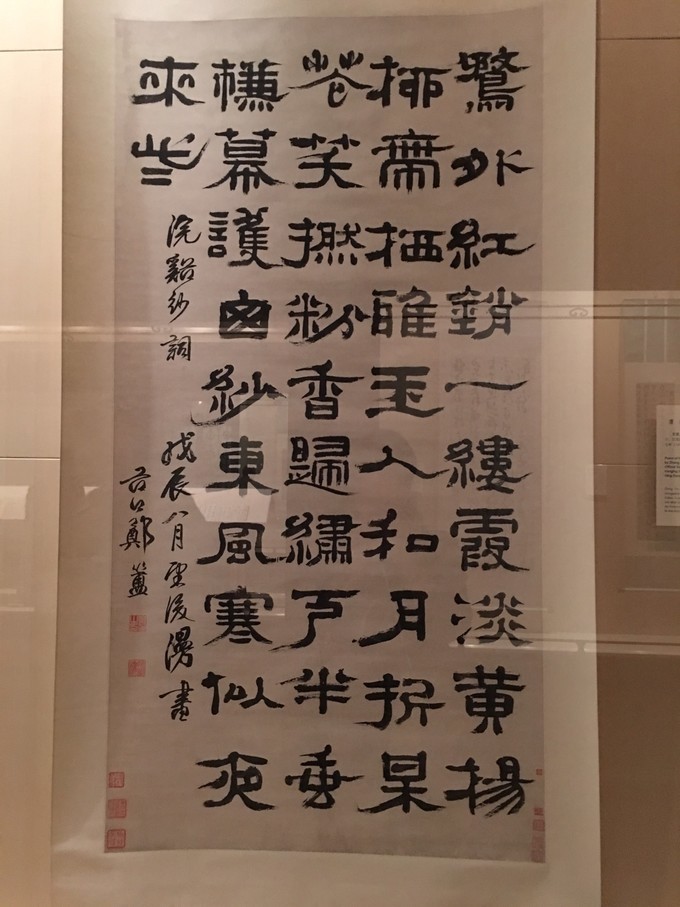 鶩外紅銷一縷霞淡黃揚
桺帶栖雅玉人和月折呆
花笑撚粉香歸繡戶半垂
幕護囪紗東風寒似夜
來些
浣谿紗詞 戊辰八月望後漫書
谷口鄭簠